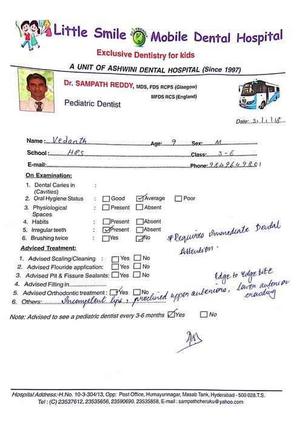 Little Smile Mobile Dental Hospital
Exclusive Dentistry for kids
A UNIT OF ASHWINI DENTAL HOSPITAL (Since 1997)
Dr. SAMPATH REDDY, MDS, FDS RCPS (Glasgow)
MFDS RCS (England)
Pediatric Dentist
Date:
Name: Vedanth Age: 9 Sex: M
School: HPS Class: 3-E
E-mail: Phone: 9849649801
On Examination:
1. Dental Caries in (Cavities) :
2. Oral Hygiene Status : Good Average Poor
3. Physiological Spaces : Present Absent
4. Habits : Present Absent
5. Irregular teeth : Present Absent
6. Brushing twice : Yes No
* Requires Immediate Dental Attention.
Advised Treatment:
1. Advised Scaling/Cleaning : Yes No
2. Advised Fluoride application: Yes No
3. Advised Pit & Fissure Sealants: Yes No
4. Advised Filling in
5. Advised Orthodontic treatment : Yes No
Edge to Edge bite
6. Others: Incompetent lips, proclined upper anteriors, lower anterior crowding
Note: Advised to see a pediatric dentist every 3-6 months Yes No
Hospital Address:-H.No. 10-3-304/13, Opp: Post Office, Humayunnagar, Masab Tank, Hyderabad - 500 028.T.S.
Tel : (C) 23537612, 23535656, 23590690, 23535658. E-mail : sampathcheruku@yahoo.com